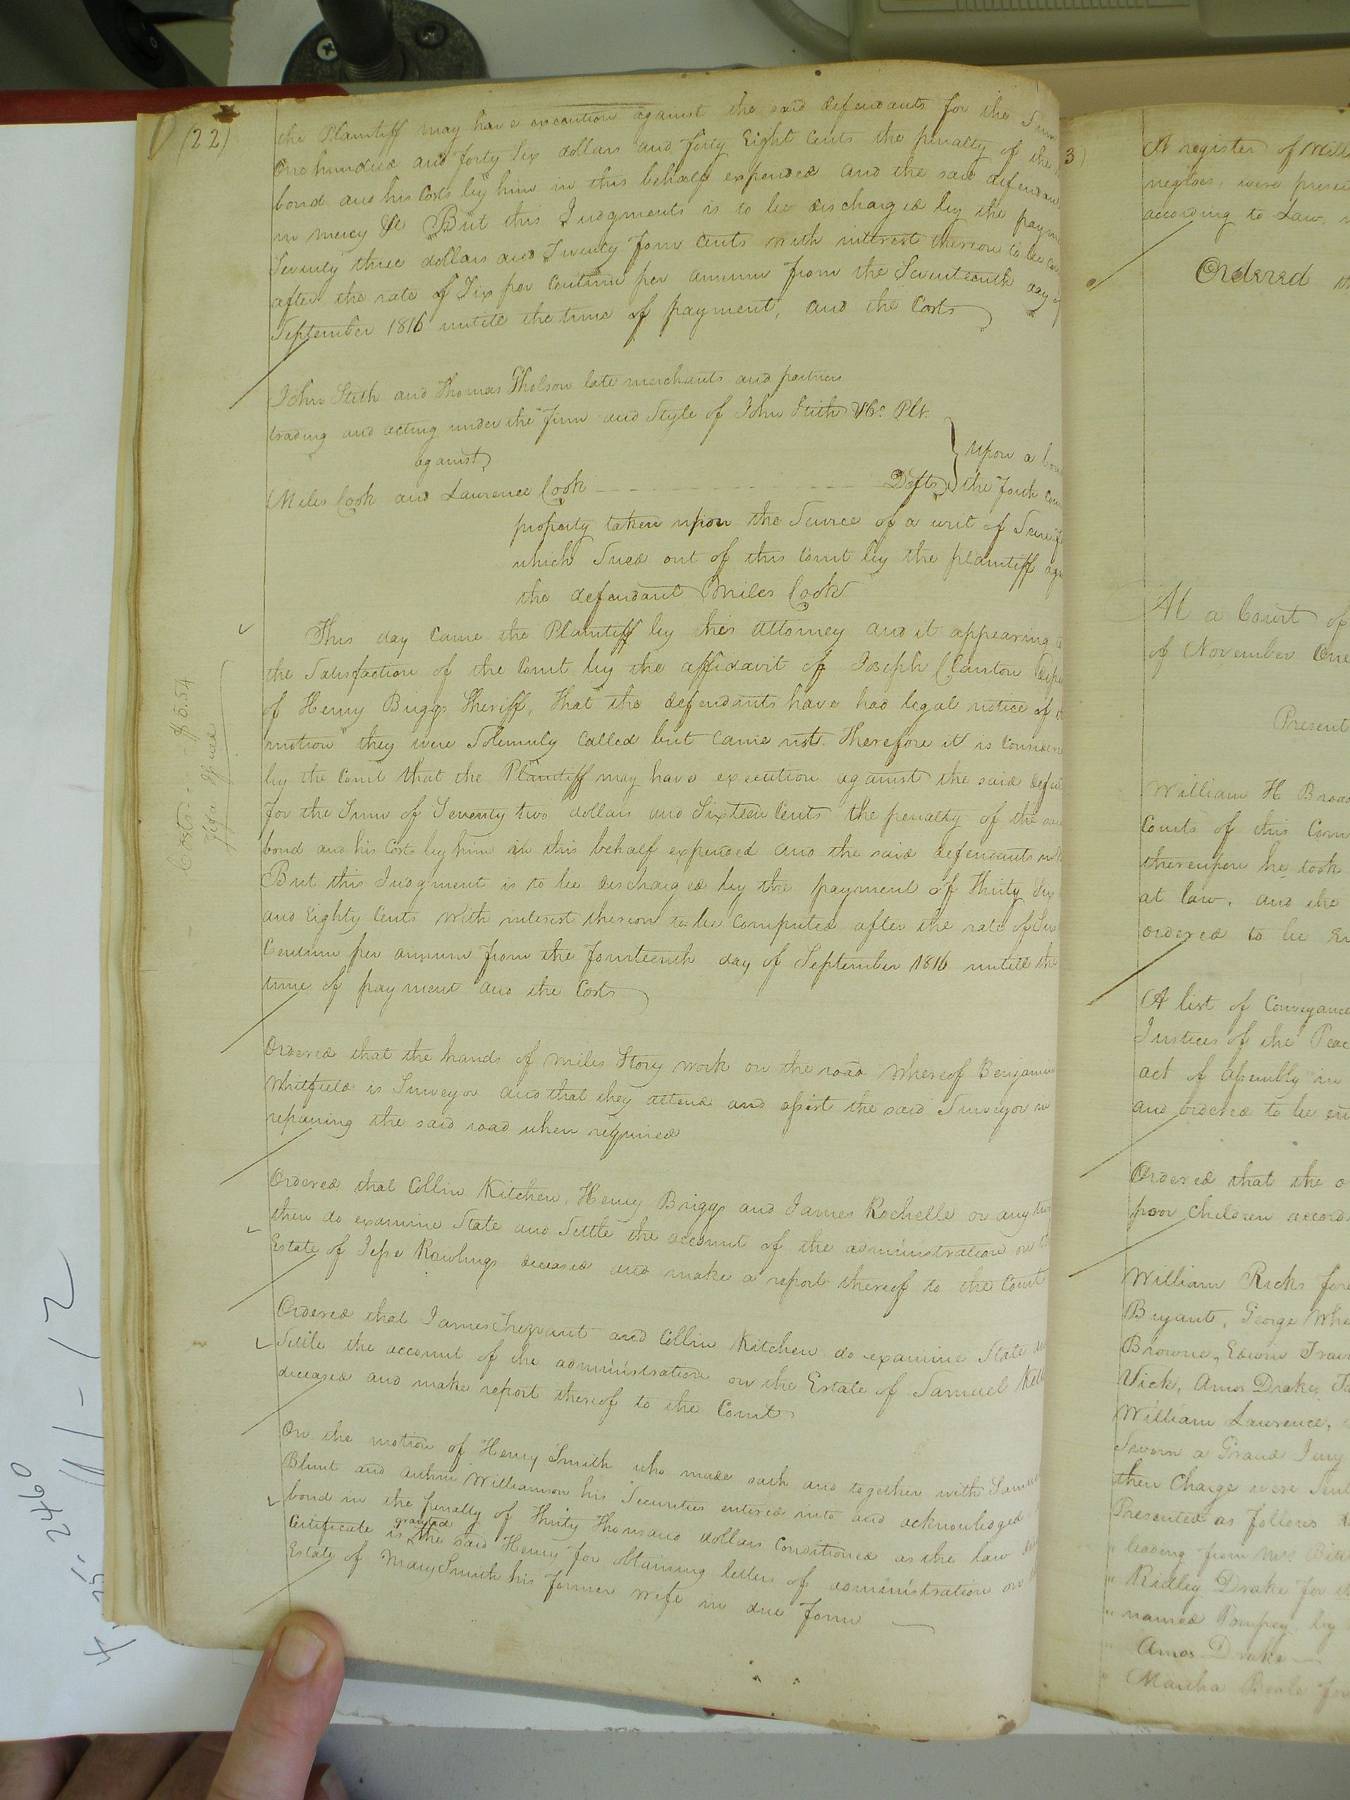 (22)
the Plaintiff may have execution against the said defendants for the Sum
One hundred and forty Six dollars and forty Eight Cents the penalty of the
bond and his Costs by him in this behalf expended and the said defendants
in mercy &c But this Judgments is to be discharged by the payment
Seventy three dollars and Twenty four Cents with interest thereon to be
after the rate of Six per Centum per annum from the Seventeenth day of
September 1816 untill the time of payment, and the Costs
John Stith and Thomas Gholson late merchants and partners
trading and acting under the Firm and Style of John Stith & Co. Plt.
against
Miles Cook and Laurence Cook Defts
Upon a
the forth
property taken upon the Service of a writ of
which Sued out of this Court by the plaintiff
the defendant Miles Cook
This day Came the Plaintiff by their Attorney and it appearing
the Satisfaction of the Court by the affidavit of Joseph Clanton
of Henry Briggs Sheriff, That the defendants have had legal notice of
motion they were Solemnly Called but Came not. Therefore it is
by the Court that the Plaintiff may have execution against the said
for the Sum of Seventy two dollars and Sixteen Cents the penalty of the
bond and his Costs by him in this behalf expended and the said defendants
But this Judgment is to be discharged by the payment of Thirty Six
and Eighty Cents with interest thereon to be Computed after the rate of Six
Centum per annum from the fourteenth day of September 1816 untill the
time of payment and the Costs
Costs $5.54
fifa Issued
Ordered that the hands of Miles Story work on the road whereof Benjamin
Whitfield is Surveyor and that they attend and assist the said Surveyor in
repairing the said road when required
Ordered that Collin Kitchen, Henry Briggs and James Rochelle or any two
then do examine State and Settle the account of the administration on the
Estate of Jesse Rawlings deceased and make a report thereof to the Court
Ordered that James Trezvant and Collin Kitchen do examine State
Settle the account of the administration on the Estate of Samuel
deceased and make report thereof to the Court
On the motion of Henry Smith who made oath and together with
Blunt and Williamson his Securities entered into and acknowledged
bond in the penalty of Thirty Thousand dollars Conditioned as the law
granted
Certificate is the said Henry for obtaining letters of administration on
Estate of Mary Smith his former wife in due form
3)
A register of
negroes, were
according to Law,
Ordered
At a Court of
of November One
Present
William H
Courts of this
thereupon he took
at law, and the
ordered to be
A list of Conveyance
Justices of the
act of Assembly in
and ordered to be
Ordered that the
poor Children
William Ricks
Bryant, George
Browne, Edwin
Vick, Amos Drake,
William Lawrence,
Sworn a Grand Jury
their Charge were
Presented as follows
leading from
Ridley Drake for
named Pompey by
Amos Drake
Martha Beale for
246
11-12